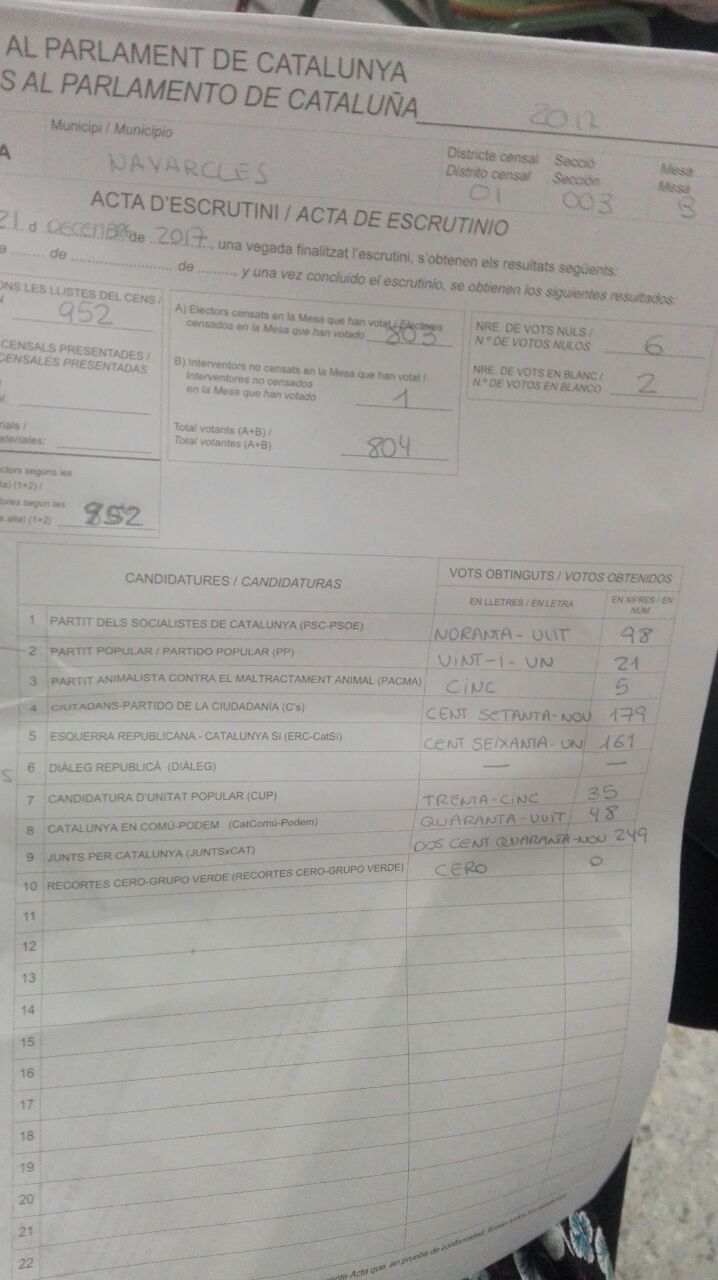 AL PARLAMENT DE CATALUNYA
S AL PARLAMENTO DE CATALUÑA 2017
Municipi / Municipio
NAVARCLES
Districte censal
Distrito censal
01
Secció
Sección
003
Mesa
Mesa
B
ACTA D'ESCRUTINI / ACTA DE ESCRUTINIO
21 d DECEMBRE de 2017, una vegada finalitzat l'escrutini, s'obtenen els resultats següents:
de de , y una vez concluido el escrutinio, se obtienen los siguientes resultados:
ONS LES LLISTES DEL CENS /
952
CENSALS PRESENTADES /
CENSALES PRESENTADAS
rials /
ateriales:
ctors segons les
ta) (1+2) /
tores según las
e alta) (1+2) 952
A) Electors censats en la Mesa que han votat / Electores
censados en la Mesa que han votado 803
B) Interventors no censats en la Mesa que han votat /
Interventores no censados
en la Mesa que han votado 1
Total votants (A+B) /
Total votantes (A+B) 804
NRE. DE VOTS NULS /
N.º DE VOTOS NULOS 6
NRE. DE VOTS EN BLANC /
N.º DE VOTOS EN BLANCO 2
CANDIDATURES / CANDIDATURAS
VOTS OBTINGUTS / VOTOS OBTENIDOS
EN LLETRES / EN LETRA
EN XIFRES / EN
NÚM.
1 PARTIT DELS SOCIALISTES DE CATALUNYA (PSC-PSOE) NORANTA-VUIT 98
2 PARTIT POPULAR / PARTIDO POPULAR (PP) VINT-I-UN 21
3 PARTIT ANIMALISTA CONTRA EL MALTRACTAMENT ANIMAL (PACMA) CINC 5
4 CIUTADANS-PARTIDO DE LA CIUDADANÍA (C's) CENT SETANTA-NOU 179
5 ESQUERRA REPUBLICANA - CATALUNYA SÍ (ERC-CatSí) CENT SEIXANTA-UN 161
6 DIÀLEG REPUBLICÀ (DIÀLEG) — —
7 CANDIDATURA D'UNITAT POPULAR (CUP) TRENTA-CINC 35
8 CATALUNYA EN COMÚ-PODEM (CatComú-Podem) QUARANTA-VUIT 48
9 JUNTS PER CATALUNYA (JUNTSxCAT) DOS CENT QUARANTA-NOU 249
10 RECORTES CERO-GRUPO VERDE (RECORTES CERO-GRUPO VERDE) CERO 0
11
12
13
14
15
16
17
18
19
20
21
22
Acta que, en prueba de conformidad, firman todos los